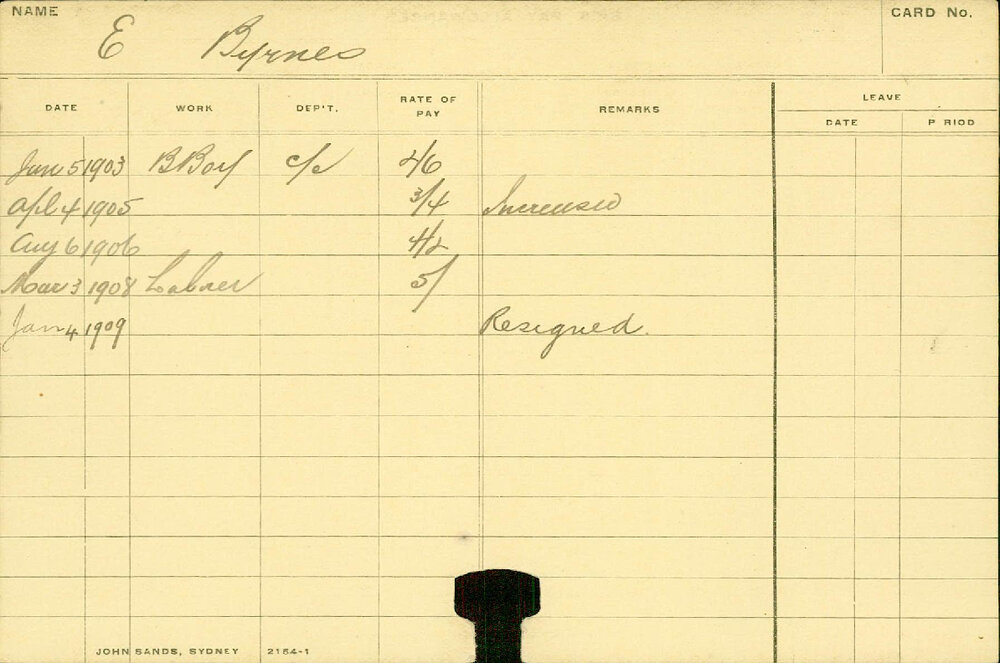 NAME E Byrnes CARD No.
DATE WORK DEP'T. RATE OF PAY REMARKS LEAVE
DATE P RIOD
Jan 5 1903 BBoy c/s 2/6
Apl 4 1905 3/4 Increased
Aug 6 1906 4/2
Mar 3 1908 Labrer 5/
Jan 4 1909 Resigned.
JOHN SANDS, SYDNEY 2154-1